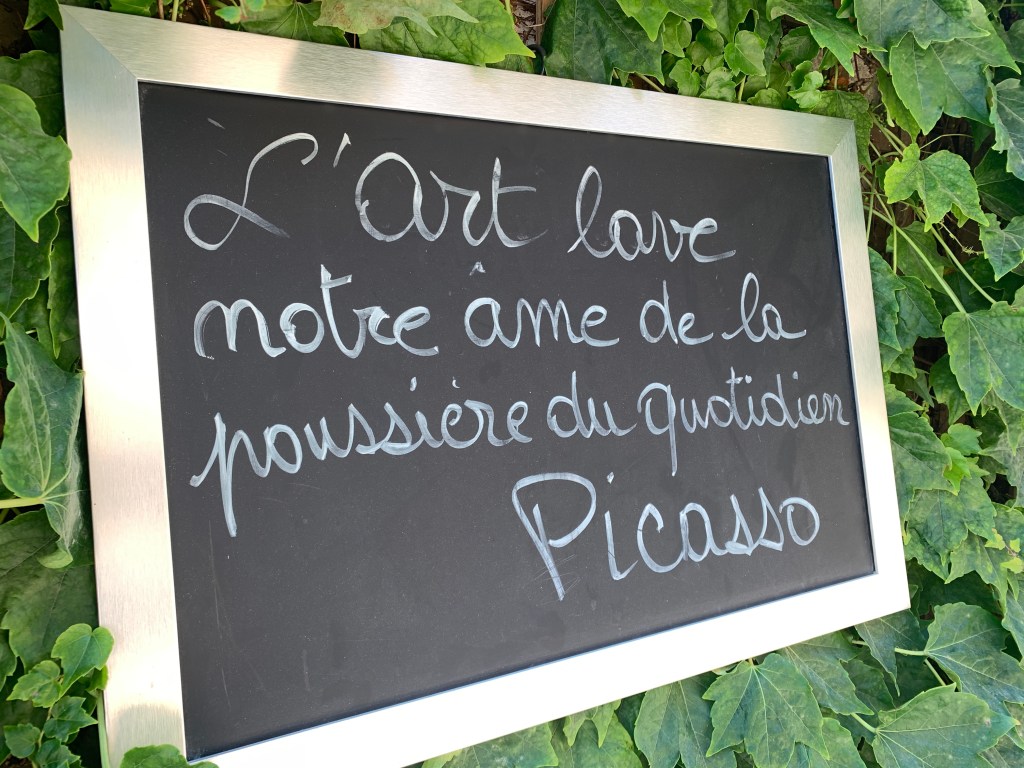 L'Art lave
notre âme de la
poussière du quotidien
Picasso